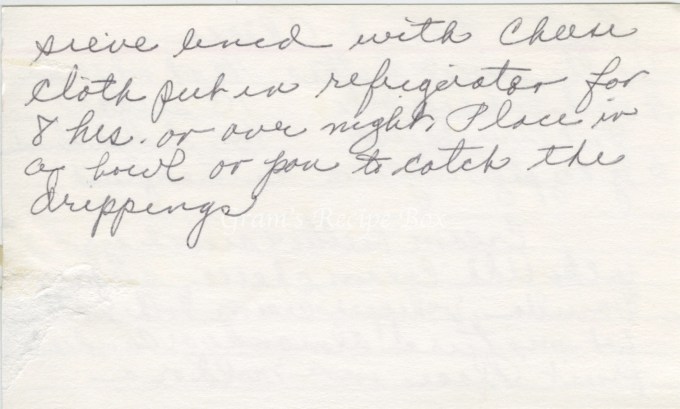 sieve lined with cheese
cloth put in refrigerator for
8 hrs. or over night. Place in
a bowl or pan to catch the
drippings
Gram's Recipe Box